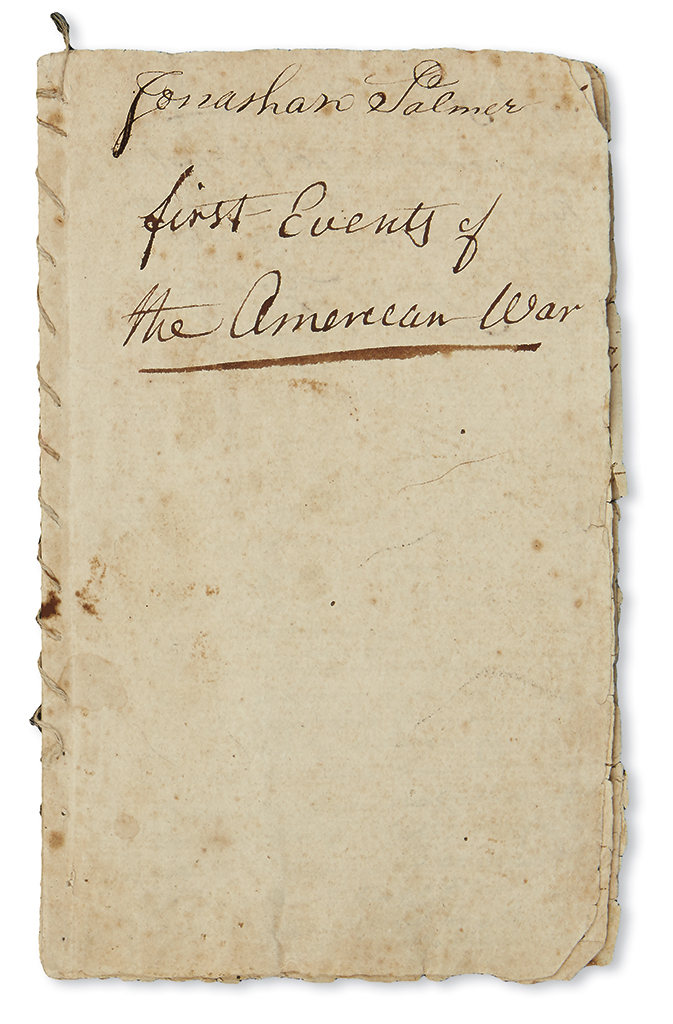 Jonathan Palmer
first Events of
the American War